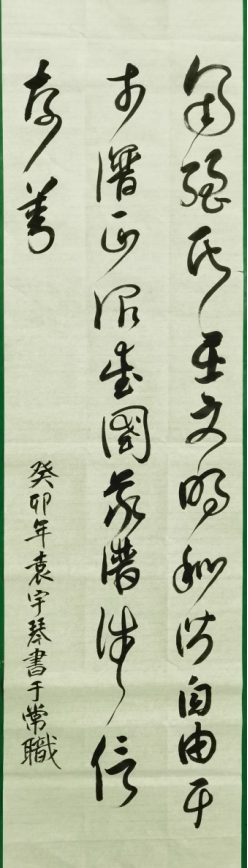 富强民主文明和谐自由平
等公正法治爱国敬业诚信
友善
癸卯年袁宇琴書于常職